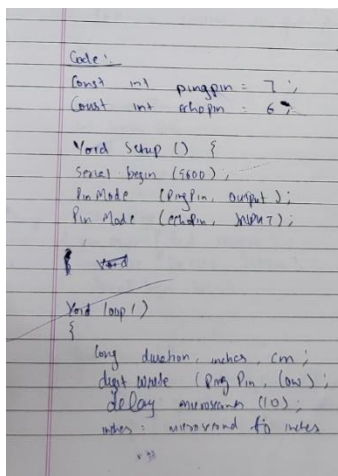 Code:-
Const int pingpin = 7 ;
Const int echopin = 6 ;
Void Setup () {
Serial begin (9600) ;
Pin Mode (PingPin, output) ;
Pin Mode (echoPin, INPUT) ;
Void
Void loop ()
{
long duration, inches, cm ;
digit write (Ping Pin, low) ;
delay microseconds (10) ;
inches = microsecond to inches